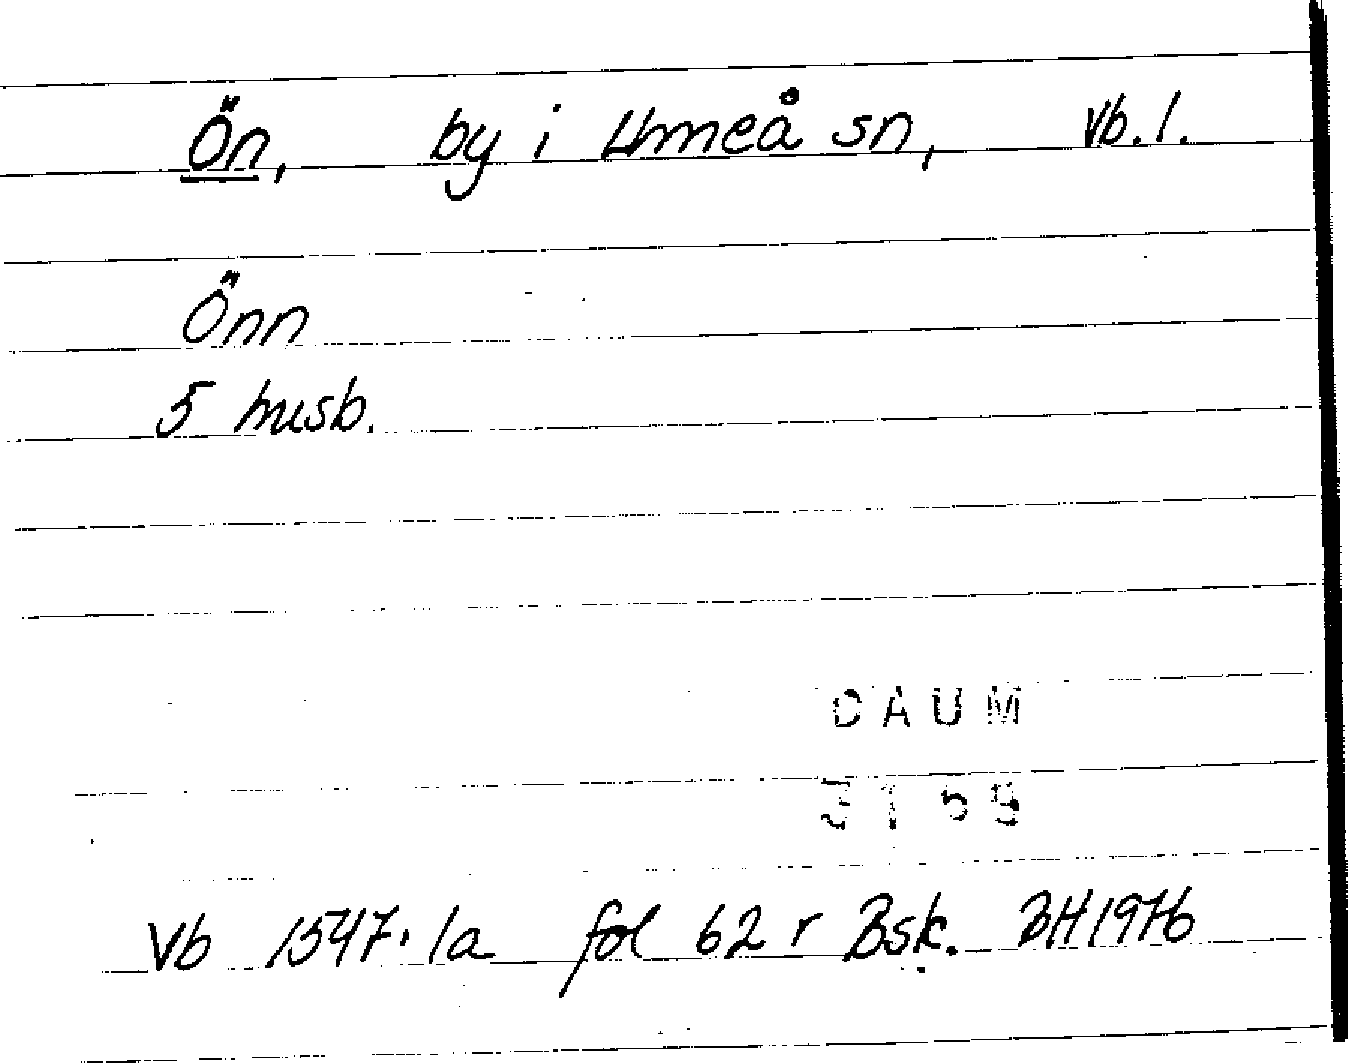 Ön, by i Umeå sn, Vb. l.
Önn
5 husb.
DAUM
3159
Vb 1547:1a fol 62 r Bsk. BH1976